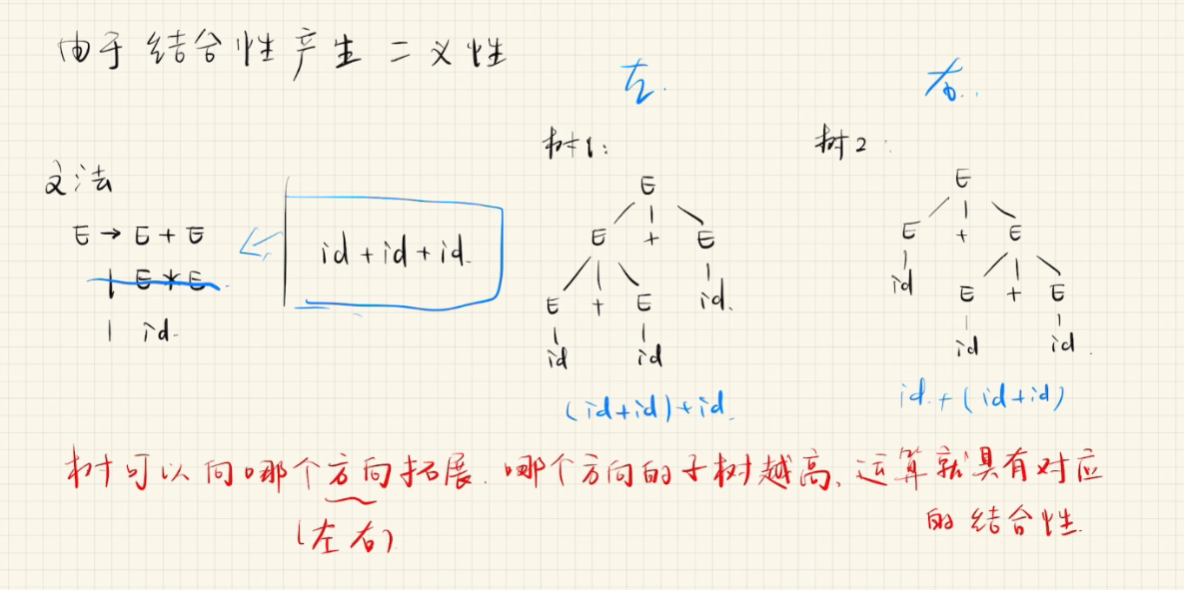 由于结合性产生二义性
左.
右..
树1:
树2:
文法
E → E + E
| E * E
| id.
id + id + id.
E
E + E
E + E id.
id id
(id+id)+id.
E
E + E
id E + E
id id.
id.+(id+id)
树可以向哪个方向拓展.哪个方向的子树越高、运算就具有对应
的结合性.
(左右)